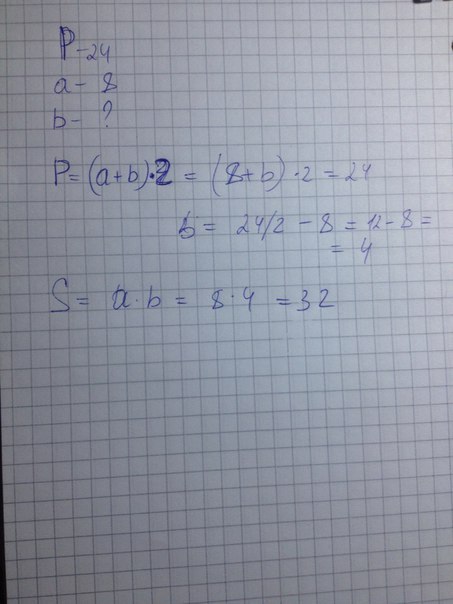 P-24
a- 8
b- ?
P=(a+b)·2 = (8+b)·2 =24
b= 24/2 - 8 = 12-8=
= 4
S= a·b = 8·4 =32